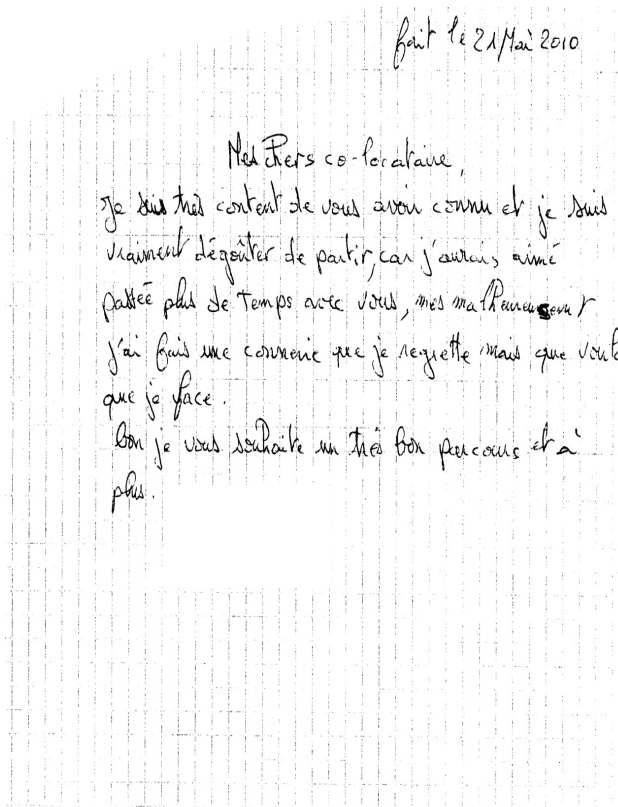 fait le 21 Mai 2010
Mes chers co-locataire,
Je suis très content de vous avoir connu et je suis
vraiment dégoûter de partir, car j'aurais aimé
passée plus de temps avec vous, mes malheureusement
j'ai fais une connerie que je regrette mais que voul
que je face.
bon je vous souhaite un très bon parcours et à
plus.